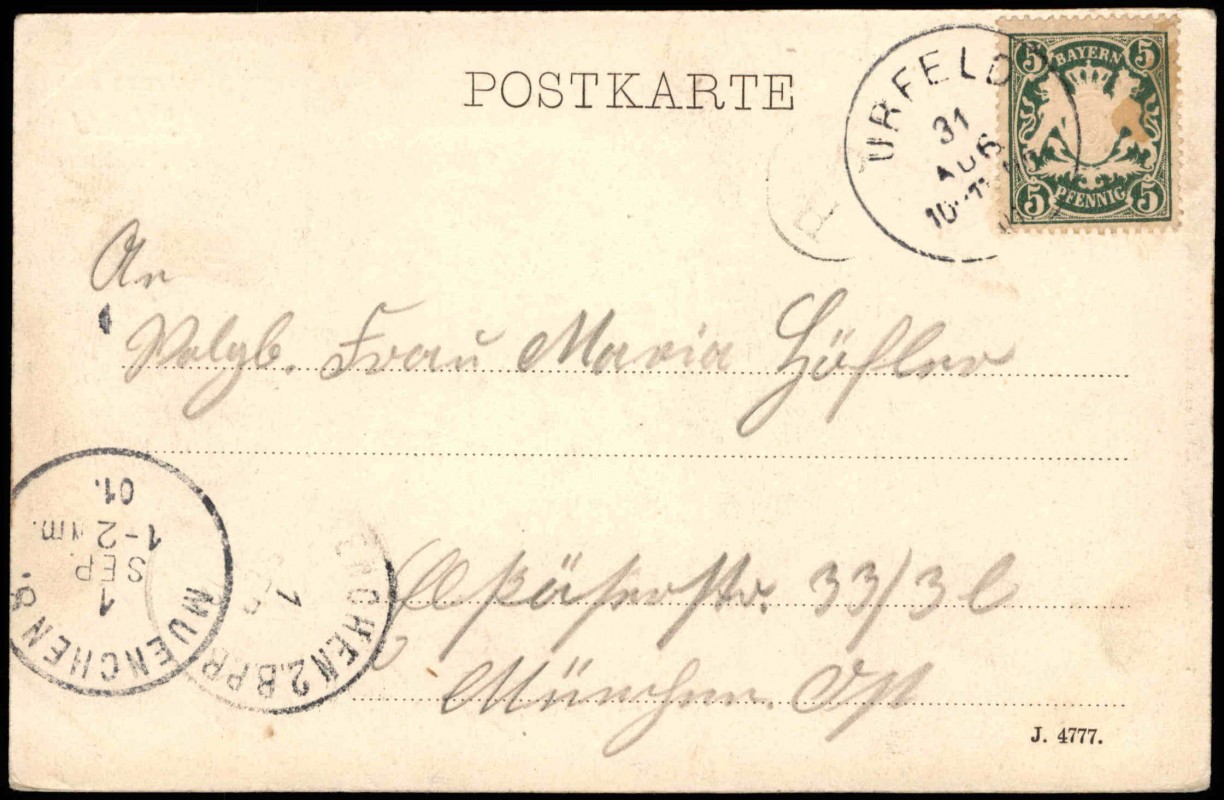 POSTKARTE
URFELD
31
AUG
10-11
5 BAYERN 5
5 PFENNIG 5
An
Wolgb. Frau Maria Höfler
33/3 l
München. Ost
MUENCHEN 8.
1
SEP.
1-2 Nm.
01.
ENCHEN 2.B.P.
1
J. 4777.